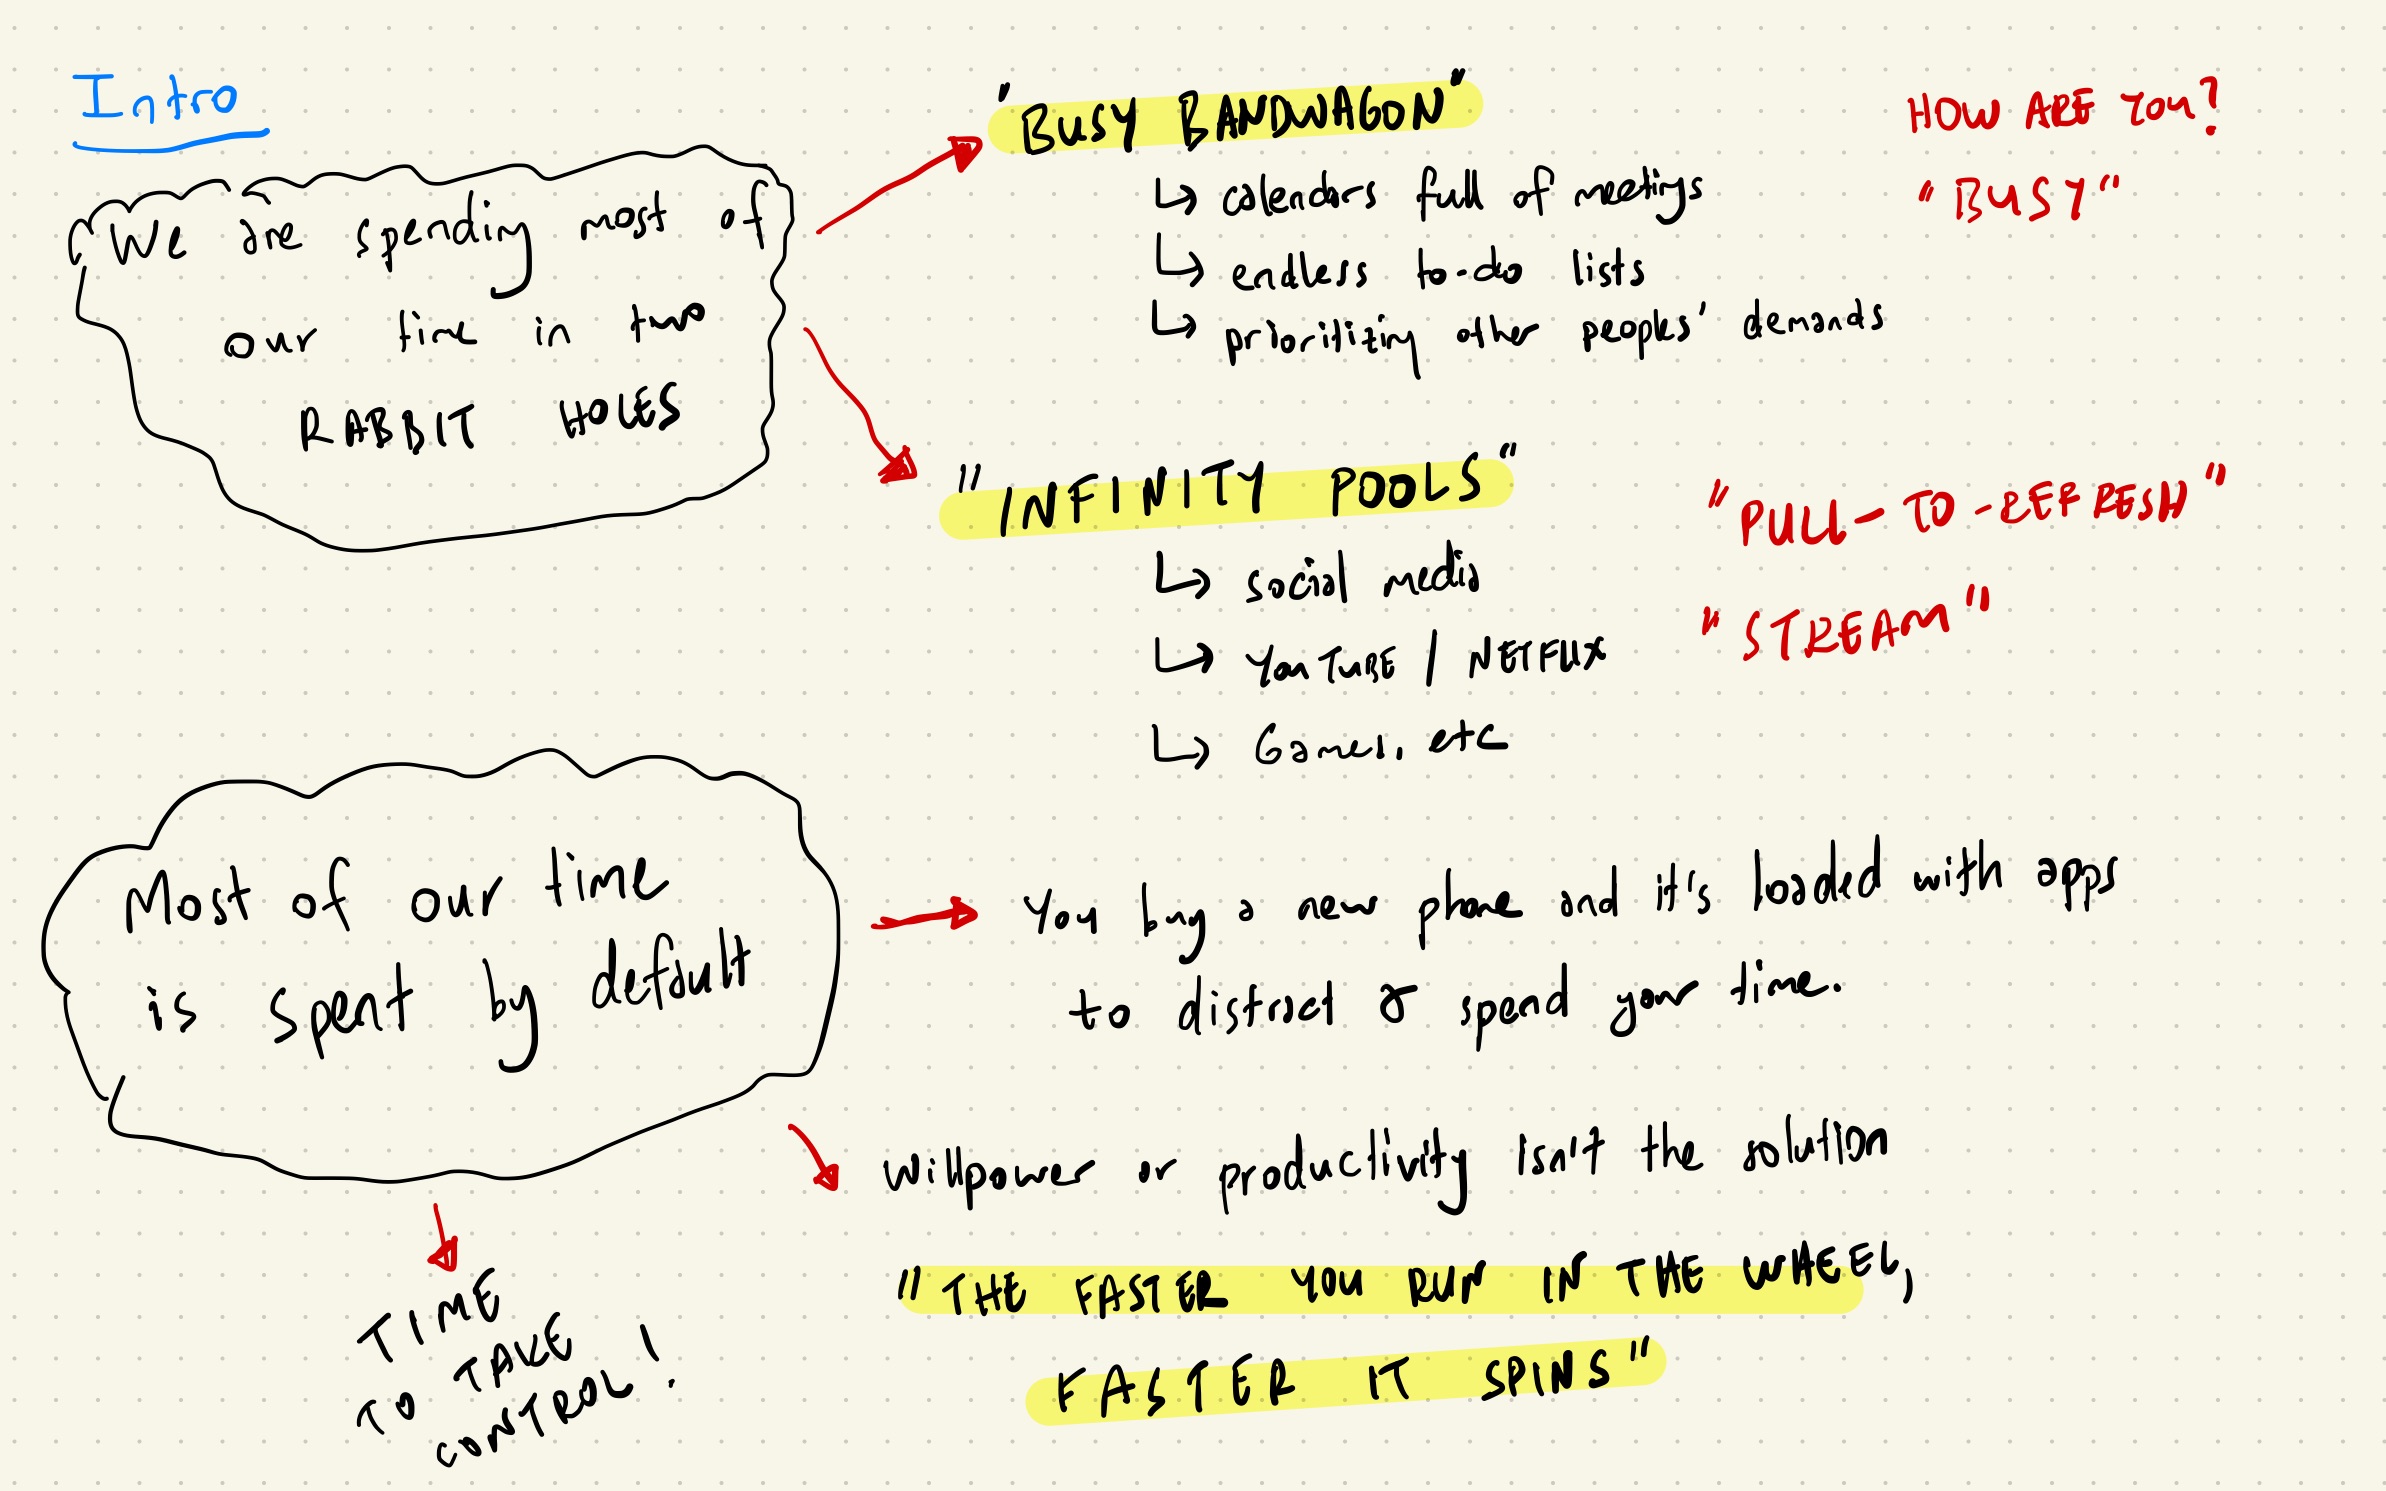 Intro
We are spending most of
our time in two
RABBIT HOLES
"BUSY BANDWAGON"
↳ calendars full of meetings
↳ endless to-do lists
↳ prioritizing other peoples' demands
HOW ARE YOU?
"BUSY"
"INFINITY POOLS"
↳ social media
↳ YOUTUBE / NETFLIX
↳ Games, etc
"PULL-TO-REFRESH"
"STREAM"
Most of our time
is spent by default
→ You buy a new phone and it's loaded with apps
to distract & spend your time.
Willpower or productivity isn't the solution
"THE FASTER YOU RUN IN THE WHEEL,
FASTER IT SPINS"
TIME
TO TAKE
CONTROL!